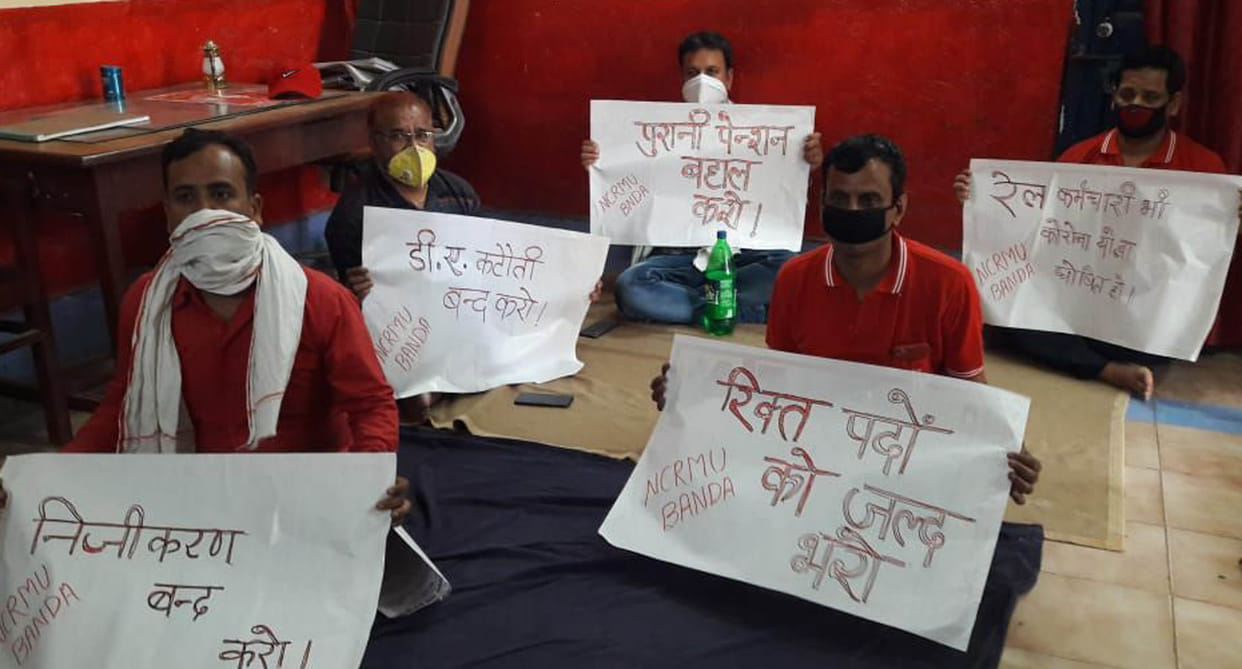 पुरानी पेन्शन
बहाल
करो।
NCRMU
BNDA
रेल कर्मचारी भी
कोरोना योद्धा
घोषित हो।
NCRMU
BANDA
डी.ए. कटौती
बन्द करो!
NCRMU
BANDA
रिक्त पदों
को जल्द
भरो
NCRMU
BANDA
निजीकरण
बन्द
करो।
NCRMU
BANDA